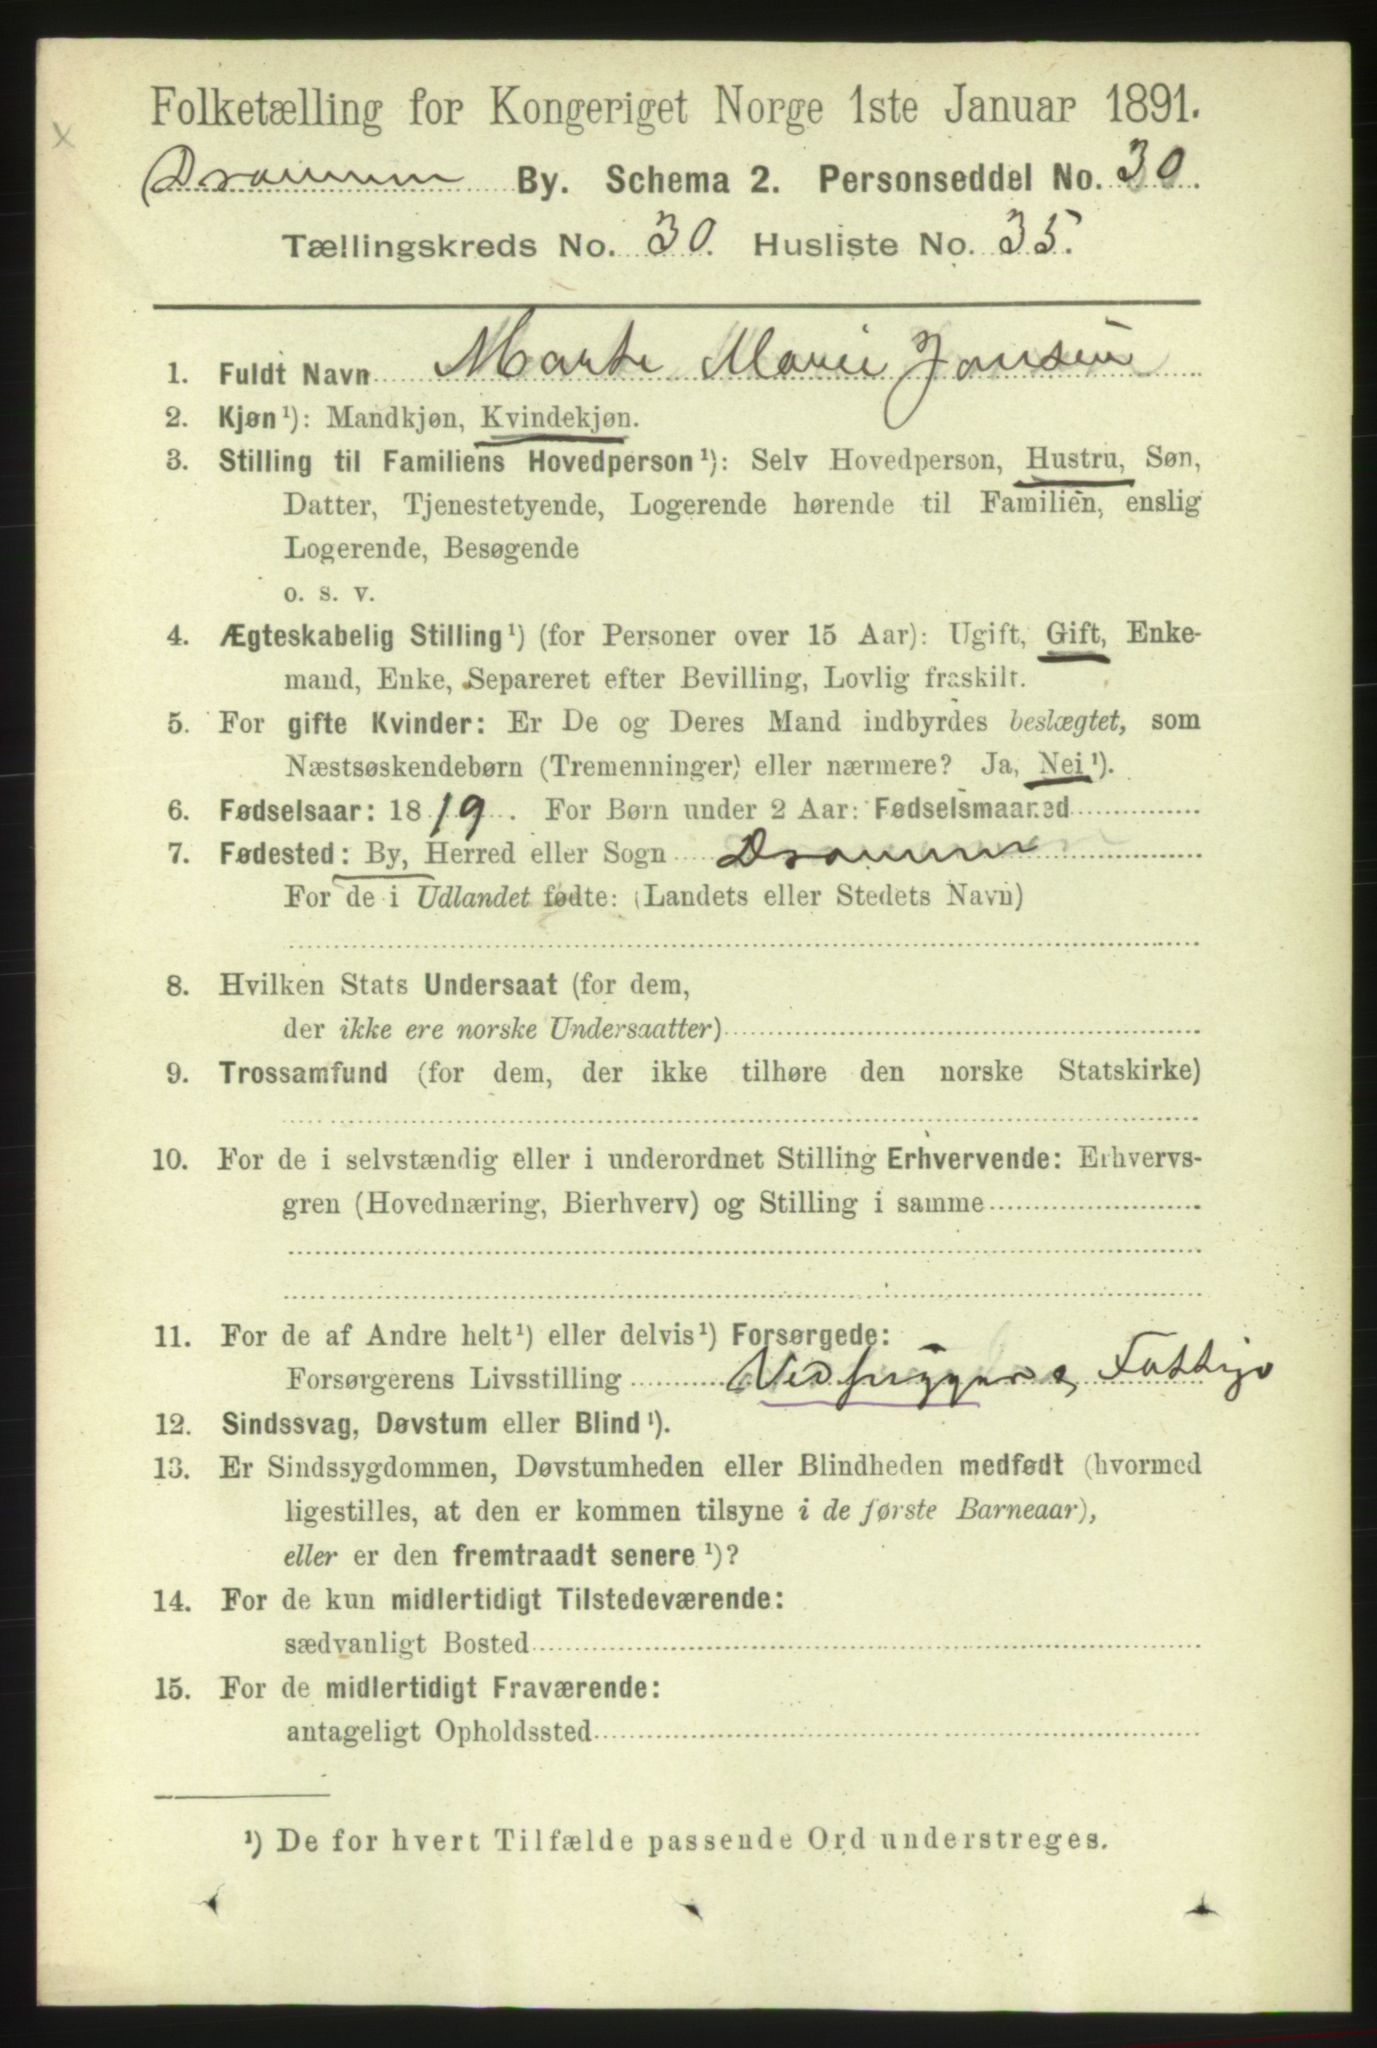 Folketælling for Kongeriget Norge 1ste Januar 1891.
Drammen By. Schema 2. Personseddel No. 30
Tællingskreds No. 30. Husliste No. 35.
1. Fuldt Navn Marte Marie Jansen
2. Kjøn¹): Mandkjøn, Kvindekjøn.
3. Stilling til Familiens Hovedperson¹): Selv Hovedperson, Hustru, Søn,
Datter, Tjenestetyende, Logerende hørende til Familien, enslig
Logerende, Besøgende
o. s. v.
4. Ægteskabelig Stilling¹) (for Personer over 15 Aar): Ugift, Gift, Enke-
mand, Enke, Separeret efter Bevilling, Lovlig fraskilt.
5. For gifte Kvinder: Er De og Deres Mand indbyrdes beslægtet, som
Næstsøskendebørn (Tremenninger) eller nærmere? Ja, Nei¹).
6. Fødselsaar: 1819. For Børn under 2 Aar: Fødselsmaaned
7. Fødested: By, Herred eller Sogn Drammen
For de i Udlandet fødte: (Landets eller Stedets Navn)
8. Hvilken Stats Undersaat (for dem,
der ikke ere norske Undersaatter)
9. Trossamfund (for dem, der ikke tilhøre den norske Statskirke)
10. For de i selvstændig eller i underordnet Stilling Erhvervende: Erhvervs-
gren (Hovednæring, Bierhverv) og Stilling i samme
11. For de af Andre helt¹) eller delvis¹) Forsørgede:
Forsørgerens Livsstilling Vedhugger, Fattige
12. Sindssvag, Døvstum eller Blind¹).
13. Er Sindssygdommen, Døvstumheden eller Blindheden medfødt (hvormed
ligestilles, at den er kommen tilsyne i de første Barneaar),
eller er den fremtraadt senere¹)?
14. For de kun midlertidigt Tilstedeværende:
sædvanligt Bosted
15. For de midlertidigt Fraværende:
antageligt Opholdssted
¹) De for hvert Tilfælde passende Ord understreges.